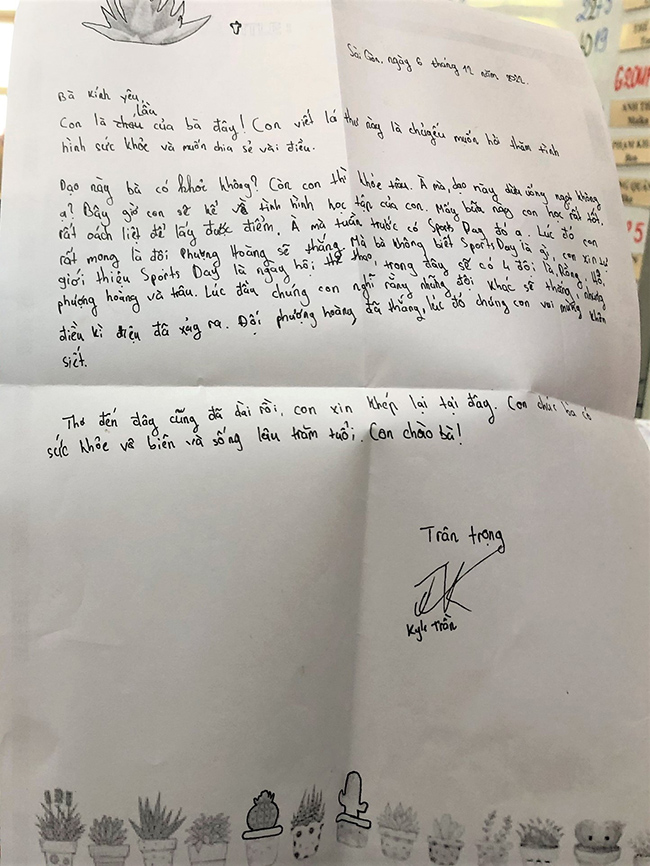 Sài Gòn, ngày 6 tháng 12 năm 2022.
Bà kính yêu,
Lâu
Con là cháu của bà đây! Con viết lá thư này là chủ yếu muốn hỏi thăm tình
hình sức khỏe và muốn chia sẻ vài điều.
Dạo này bà có khỏe không? Còn con thì khỏe lâu. À mà, dạo này dừa uống ngọt không
ạ? Bây giờ con sẽ kể về tình hình học tập của con. Mấy bữa nay con học rất tốt,
rất oách liệt để lấy được điểm. À mà tuần trước có Sports Day đó ạ. Lúc đó con
rất mong là đội Phượng Hoàng sẽ thắng. Mà bà không biết Sports Day là gì, con xin tự
giới thiệu Sports Day là ngày hội thể thao, trong đây sẽ có 4 đội: là, Rồng, Hổ,
phượng hoàng và trâu. Lúc đầu chúng con nghĩ rằng những đội khác sẽ thắng, nhưng
điều kì diệu đã xảy ra. Đội phượng hoàng đã thắng, lúc đó chúng con vui mừng khôn
siết.
Thơ đến đây cũng đã dài rồi, con xin khép lại tại đây. Con chúc bà có
sức khỏe vô biên và sống lâu trăm tuổi. Con chào bà!
Trân trọng
Kyle Trần
2019
GROUP
ANH TH